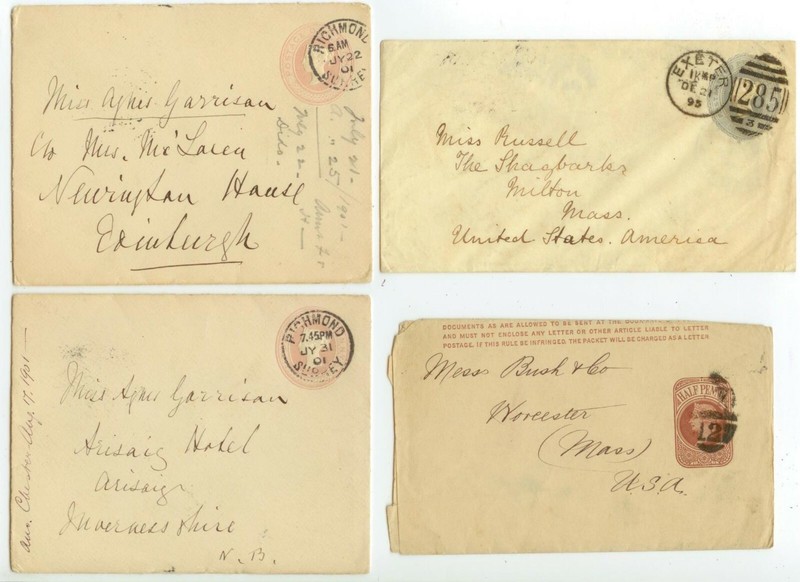 RICHMOND
6.AM
JY 22
01
SURREY
Miss Agnes Garrison
c/o Mrs. McLaren
Newington House
Edinburgh
July 21-
July 22-
EXETER
DE 21
95
285
3
Miss Russell
The Shagbarks
Milton
Mass.
United States. America
RICHMOND
7.45PM
JY 31
01
SURREY
Miss Agnes Garrison
Arisaig Hotel
Arisaig
Inverness shire
N. B.
Aug. 7. 1901
DOCUMENTS AS ARE ALLOWED TO BE SENT AT THE
AND MUST NOT ENCLOSE ANY LETTER OR OTHER ARTICLE LIABLE TO LETTER
POSTAGE. IF THIS RULE BE INFRINGED. THE PACKET WILL BE CHARGED AS A LETTER
Messs Bush & Co
Worcester
(Mass)
U.S.A.
HALF PEN
12